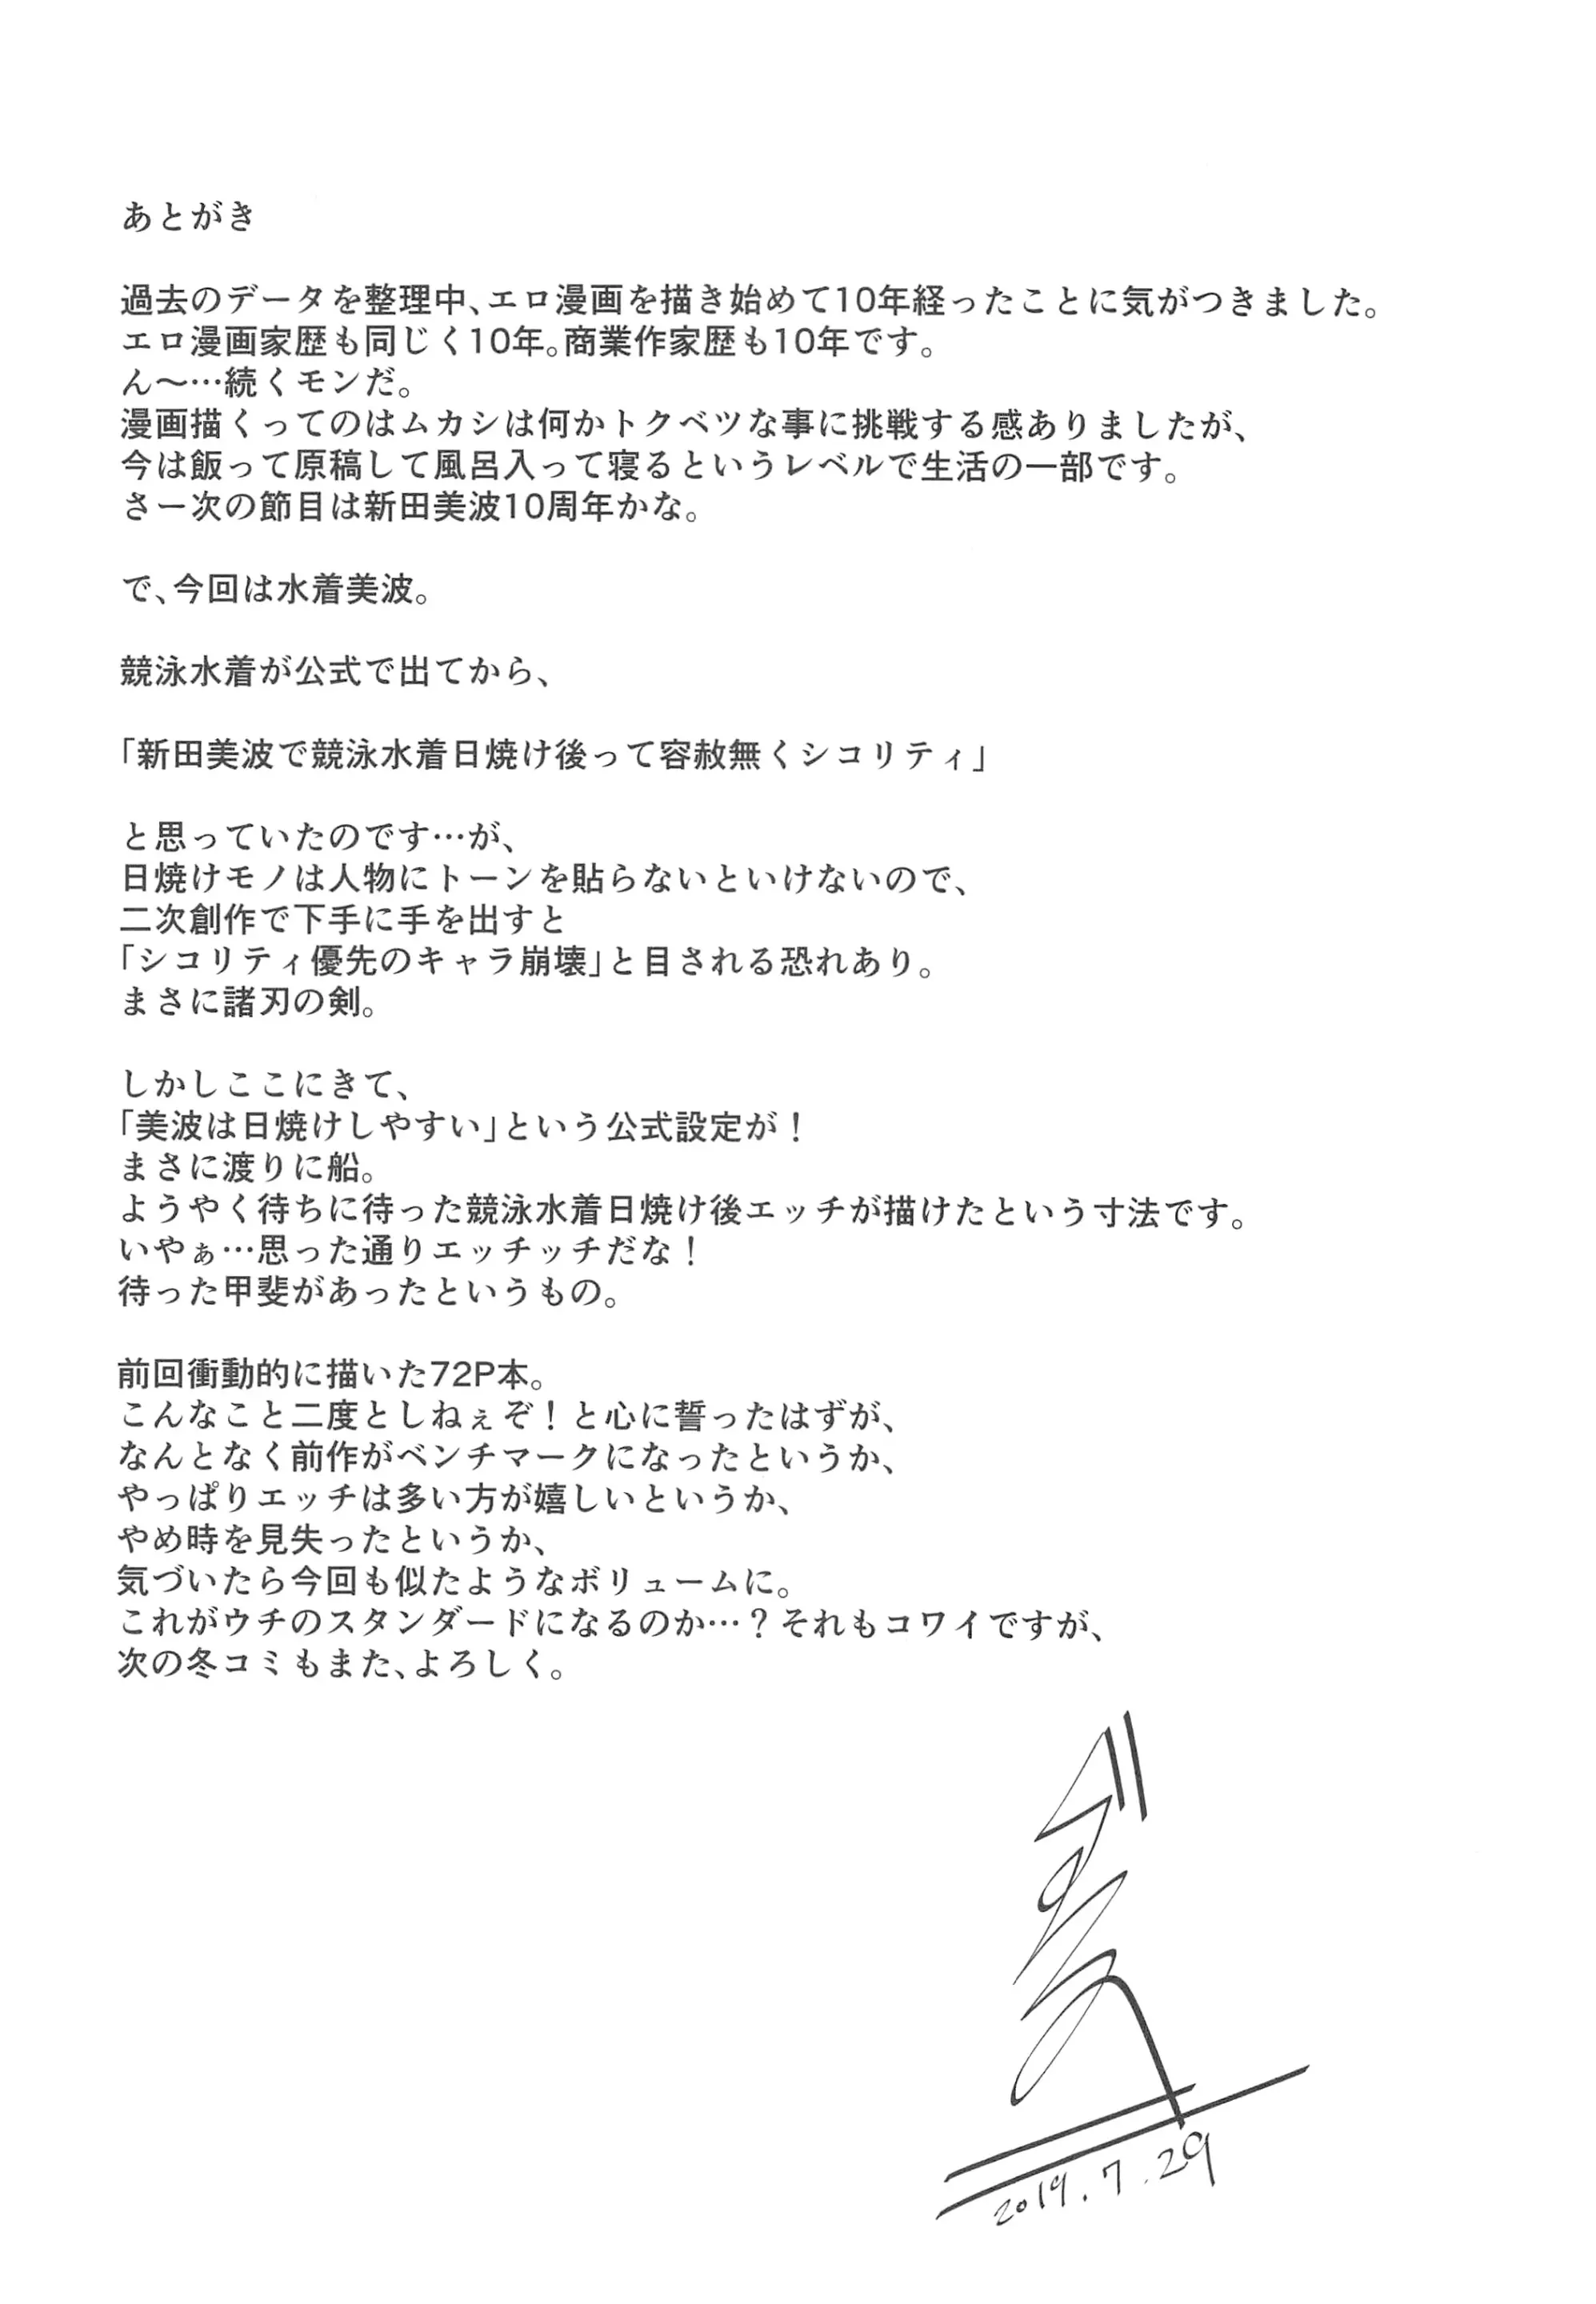 あとがき
過去のデータを整理中、エロ漫画を描き始めて10年経ったことに気がつきました。
エロ漫画家歴も同じく10年。商業作家歴も10年です。
ん～…続くモンだ。
漫画描くってのはムカシは何かトクベツな事に挑戦する感ありましたが、
今は飯って原稿して風呂入って寝るというレベルで生活の一部です。
さー次の節目は新田美波10周年かな。
で、今回は水着美波。
競泳水着が公式で出てから、
「新田美波で競泳水着日焼け後って容赦無くシコリティ」
と思っていたのです…が、
日焼けモノは人物にトーンを貼らないといけないので、
二次創作で下手に手を出すと
「シコリティ優先のキャラ崩壊」と目される恐れあり。
まさに諸刃の剣。
しかしここにきて、
「美波は日焼けしやすい」という公式設定が！
まさに渡りに船。
ようやく待ちに待った競泳水着日焼け後エッチが描けたという寸法です。
いやぁ…思った通りエッチッチだな！
待った甲斐があったというもの。
前回衝動的に描いた72P本。
こんなこと二度としねぇぞ！と心に誓ったはずが、
なんとなく前作がベンチマークになったというか、
やっぱりエッチは多い方が嬉しいというか、
やめ時を見失ったというか、
気づいたら今回も似たようなボリュームに。
これがウチのスタンダードになるのか…？それもコワイですが、
次の冬コミもまた、よろしく。
2019.7.29